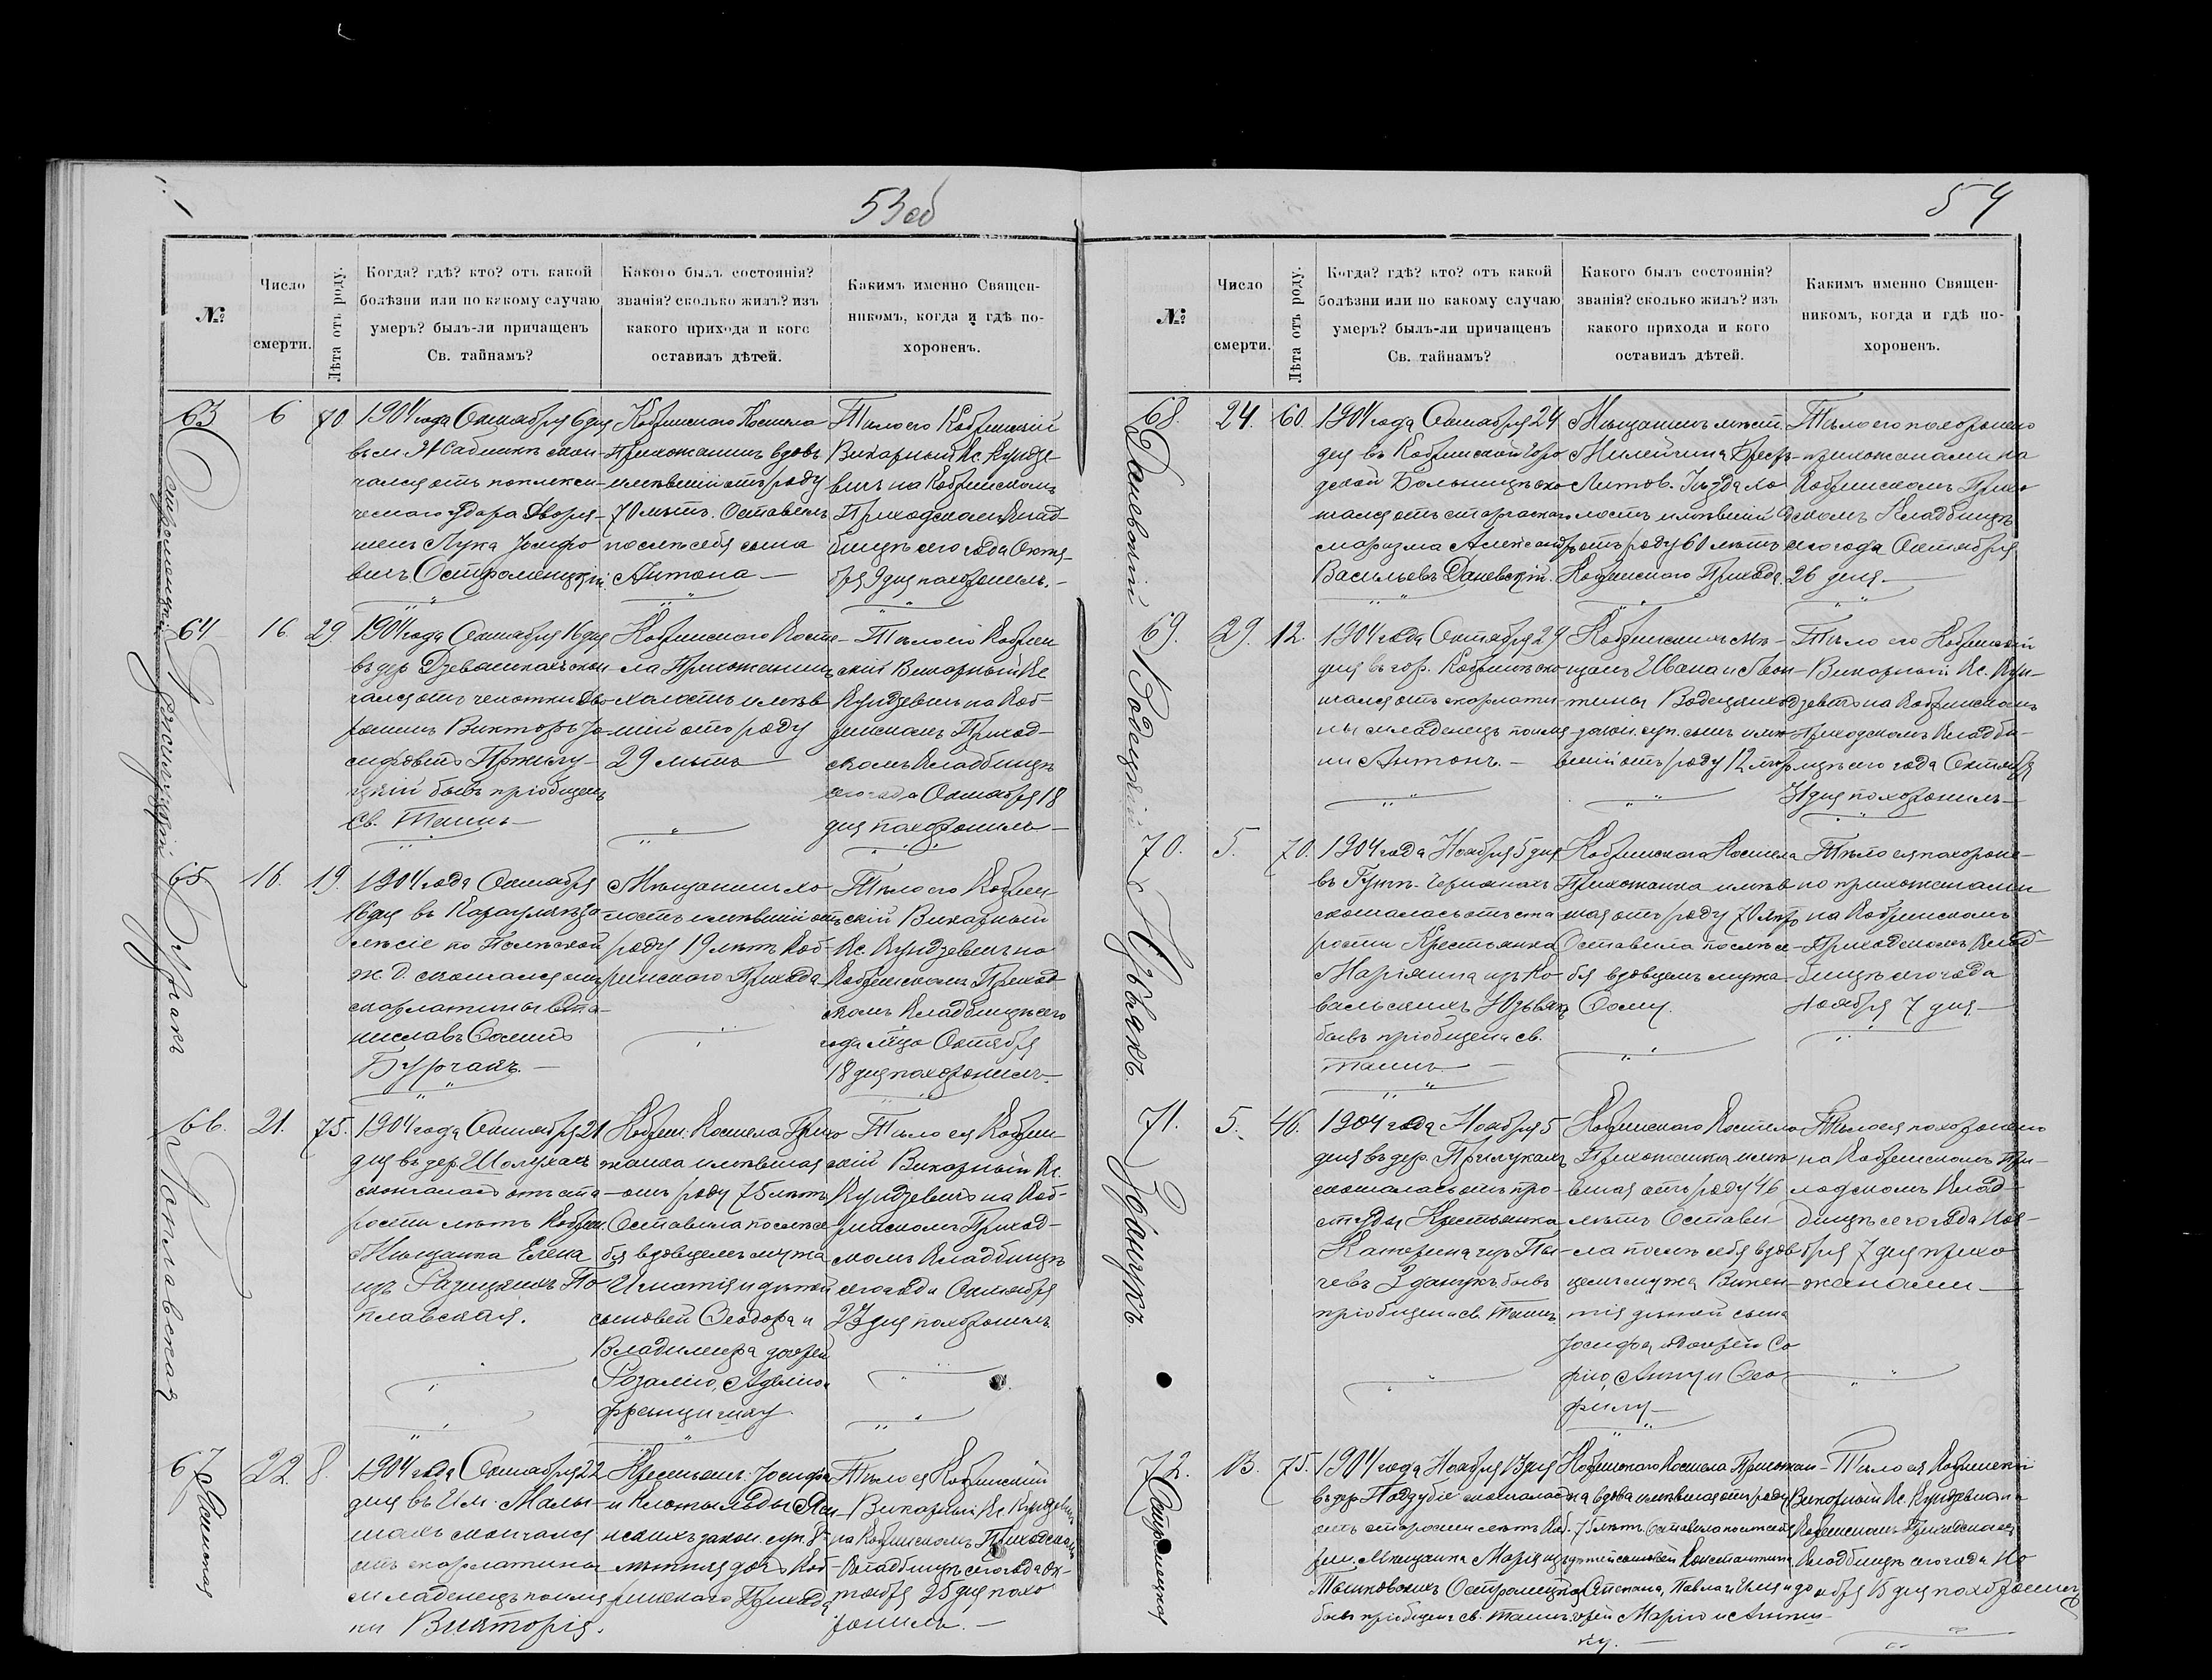 53 об
№
Число смерти.
Лѣта отъ роду.
Когда? гдѣ? кто? отъ какой
болѣзни или по какому случаю
умеръ? былъ-ли причащенъ
Св. тайнамъ?
Какого былъ состоянія?
званія? сколько жилъ? изъ
какого прихода и кого
оставилъ дѣтей.
Какимъ именно Священ-
никомъ, когда и гдѣ по-
хороненъ.
63
Островлицкій
6
70
1904 года Октября 6 дня
скон-
чался отъ апоплекси-
ческаго удара Дворя-
нинъ Лука Іосифо
вичъ
Кобринскаго Костела
Прихожанинъ вдовъ
имѣвшій отъ роду
70 лѣтъ. Оставилъ
послѣ себя сына
Антона —
Тѣло его Кобринскій
Викарный Кс. Кундзе-
вичъ на Кобринскомъ
Приходскомъ Клад-
бищѣ сего года Октя-
бря 9 дня похоронилъ. —
64
16
29
1904 года Октября 16 дня
въ дер. скон-
чался отъ чахотки Дво-
рянинъ Викторъ Іо-
сифовъ
бывъ пріобщенъ
Св. Таинъ —
Кобринскаго Косте-
ла Прихожанинъ
холостъ имѣв-
шій отъ роду
29 лѣтъ
Тѣло его Кобрин
скій Викарный Кс
Кундзевичъ на Коб-
ринскомъ Приход-
скомъ Кладбищѣ
сего года Октября 18
дня похоронилъ —
65
Бурчакъ
16.
19.
1904 года Октября
16 дня въ
по Полѣсской
ж. д. скончался отъ
скарлатины Ста-
ниславъ
Бурчакъ. —
Мѣщанинъ хо-
лостъ имѣвшій отъ
роду 19 лѣтъ Коб-
ринскаго Прихода
Тѣло его Кобрин-
скій Викарный
Кс. Кундзевичъ на
Кобринскомъ Приход-
скомъ Кладбищѣ сего
года м-ца Октября
18 дня похоронилъ —
66.
Поплавская
21.
75.
1904 года Октября 21
дня въ дер.
скончалась отъ ста-
рости лѣтъ Кобрин.
Мѣщанка Елена
изъ По-
плавская.
Кобрин. Костела Прихо
жанка имѣвшая
отъ роду 75 лѣтъ
Оставила послѣ се-
бя вдовцемъ мужа
Игнатія и дѣтей
сыновей Ѳеодора и
Владимира дочерей
Розалію, Аделію
Францишку
Тѣло ея Кобрин-
скій Викарный Кс.
Кундзевичъ на Коб-
ринскомъ Приход-
скомъ Кладбищѣ
сего года Октября
23 дня похоронилъ
67
22.
8.
1904 года Октября 22
дня въ Им.
скончался
отъ скарлатины
младенецъ по име
ни Викторія.
Крестьянъ Іосифа
и Клотильды
закон. суп. 8-
лѣтняя дочь Коб
ринскаго Прихода
Тѣло ея Кобринскій
Викарный Кс. Кундзевичъ
на Кобринскомъ Приходском
Кладбищѣ сего года Ок-
тября 25 дня похо
ронилъ. —
54
№
Число смерти.
Лѣта отъ роду.
Когда? гдѣ? кто? отъ какой
болѣзни или по какому случаю
умеръ? былъ-ли причащенъ
Св. тайнамъ?
Какого былъ состоянія?
званія? сколько жилъ? изъ
какого прихода и кого
оставилъ дѣтей.
Какимъ именно Священ-
никомъ, когда и гдѣ по-
хороненъ.
68.
Даневскій
24.
60.
1904 года Октября 24
дня въ Кобринской Горо
дской Больницѣ ско
нчался отъ старческаго
маразма Александръ
Васильевъ Даневскій.
Мѣщанинъ мѣст.
Милейчица Брест-
Литов. Уѣзда хо
лостъ имѣвшій
отъ роду 60 лѣтъ
Кобринскаго Прихода.
Тѣло его похоронено
прихожанами на
Кобринскомъ Прихо
дскомъ Кладбищѣ
сего года Октября
26 дня. —
69.
Водецкій
29.
12.
1904 года Октября 29
дня въ гор. Кобринѣ ско-
нчался отъ скарлати-
ны младенецъ по име-
ни Антонъ. —
Кобринскихъ мѣ-
щанъ Ивана и
закон. суп. сынъ имѣ-
вшій отъ роду 12 лѣтъ
Тѣло его Кобринскій
Викарный Кс. Кун-
дзевичъ на Кобринскомъ
Приходскомъ Кладби-
щѣ сего года Октября
31 дня похоронилъ —
70.
Юзвякъ.
5.
70.
1904 года Ноября 5 дня
въ
скончалась отъ ста
рости Крестьянка
Маріянна изъ Ко-
вальскихъ Юзвякъ
бывъ пріобщена св.
таинъ —
Кобринскаго Костела
Прихожанка имѣв
шая отъ роду 70 лѣтъ
Оставила послѣ се-
бя вдовцемъ мужа
Ѳому.
Тѣло ея похороне-
но прихожанами
на Кобринскомъ
Приходскомъ Клад-
бищѣ сего года
Ноября 7 дня —
71.
Зданукъ.
5.
46.
1904 года Ноября 5
дня въ дер. Прилукахъ
скончалась отъ про-
студы Крестьянка
Катерина изъ
Зданукъ бывъ
пріобщена св. Таинъ
Кобринскаго Костела
Прихожанка имѣ-
вшая отъ роду 46
лѣтъ Остави-
ла послѣ себя вдов
цемъ мужа Викен-
тія дѣтей сына
Іосифа дочерей Со
фію, Анну и Ѳео-
филу —
Тѣло ея похоронено
на Кобринскомъ При-
ходскомъ Клад-
бищѣ сего года Ноя-
бря 7 дня прихо
жанами —
72.
13.
75.
1904 года Ноября 13 дня
въ дер. скончалась
отъ старости лѣтъ Коб-
рин. Мѣщанка Марія изъ
бывъ пріобщена св. таинъ
Кобринскаго Костела Прихожан-
ка вдова имѣвшая отъ роду
75 лѣтъ. Оставила послѣ себя
дѣтей сыновей Константина
Степана, Павла и и до
черей Марію и
Тѣло ея Кобринскій
Викарный Кс. Кундзевичъ на
Кобринскомъ Приходскомъ
Кладбищѣ сего года Но
ября 15 дня похоронилъ